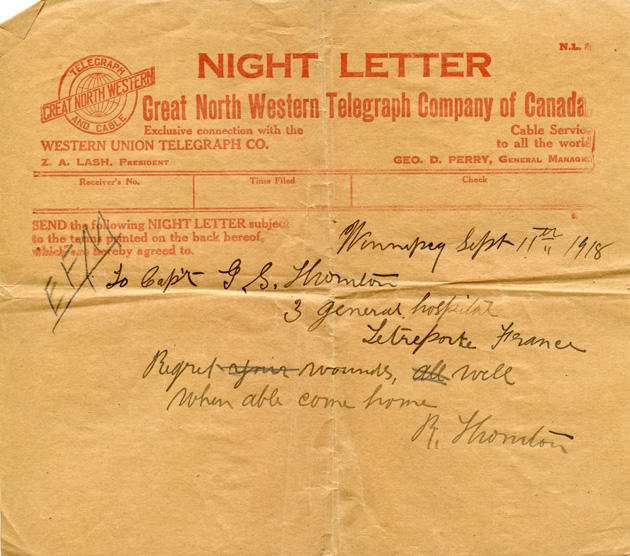 N.L.
NIGHT LETTER
TELEGRAPH
GREAT NORTH WESTERN
AND CABLE
Great North Western Telegraph Company of Canada
Exclusive connection with the
WESTERN UNION TELEGRAPH CO.
Cable Service
to all the world
Z. A. LASH, PRESIDENT
GEO. D. PERRY, GENERAL MANAGER
Receiver's No. Time Filed Check
SEND the following NIGHT LETTER subject
to the terms printed on the back hereof,
which are hereby agreed to.
Winnipeg Sept 11th 1918
To Capt G S. Thornton
3 General hospital
Letreporte France
Regret your wounds, all well
when able come home
R. Thornton